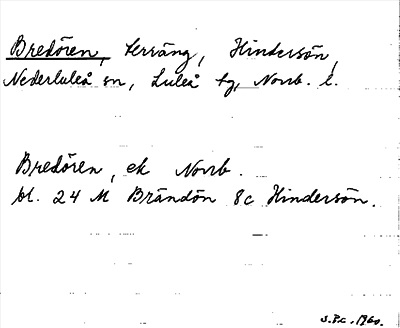 Bredören, terräng, Hindersön,
Nederluleå sn, Luleå tg, Norrb. l.
Bredören, ek Norrb.
bl. 24 M Brändön 8c Hindersön.
S.P.c. 1960.